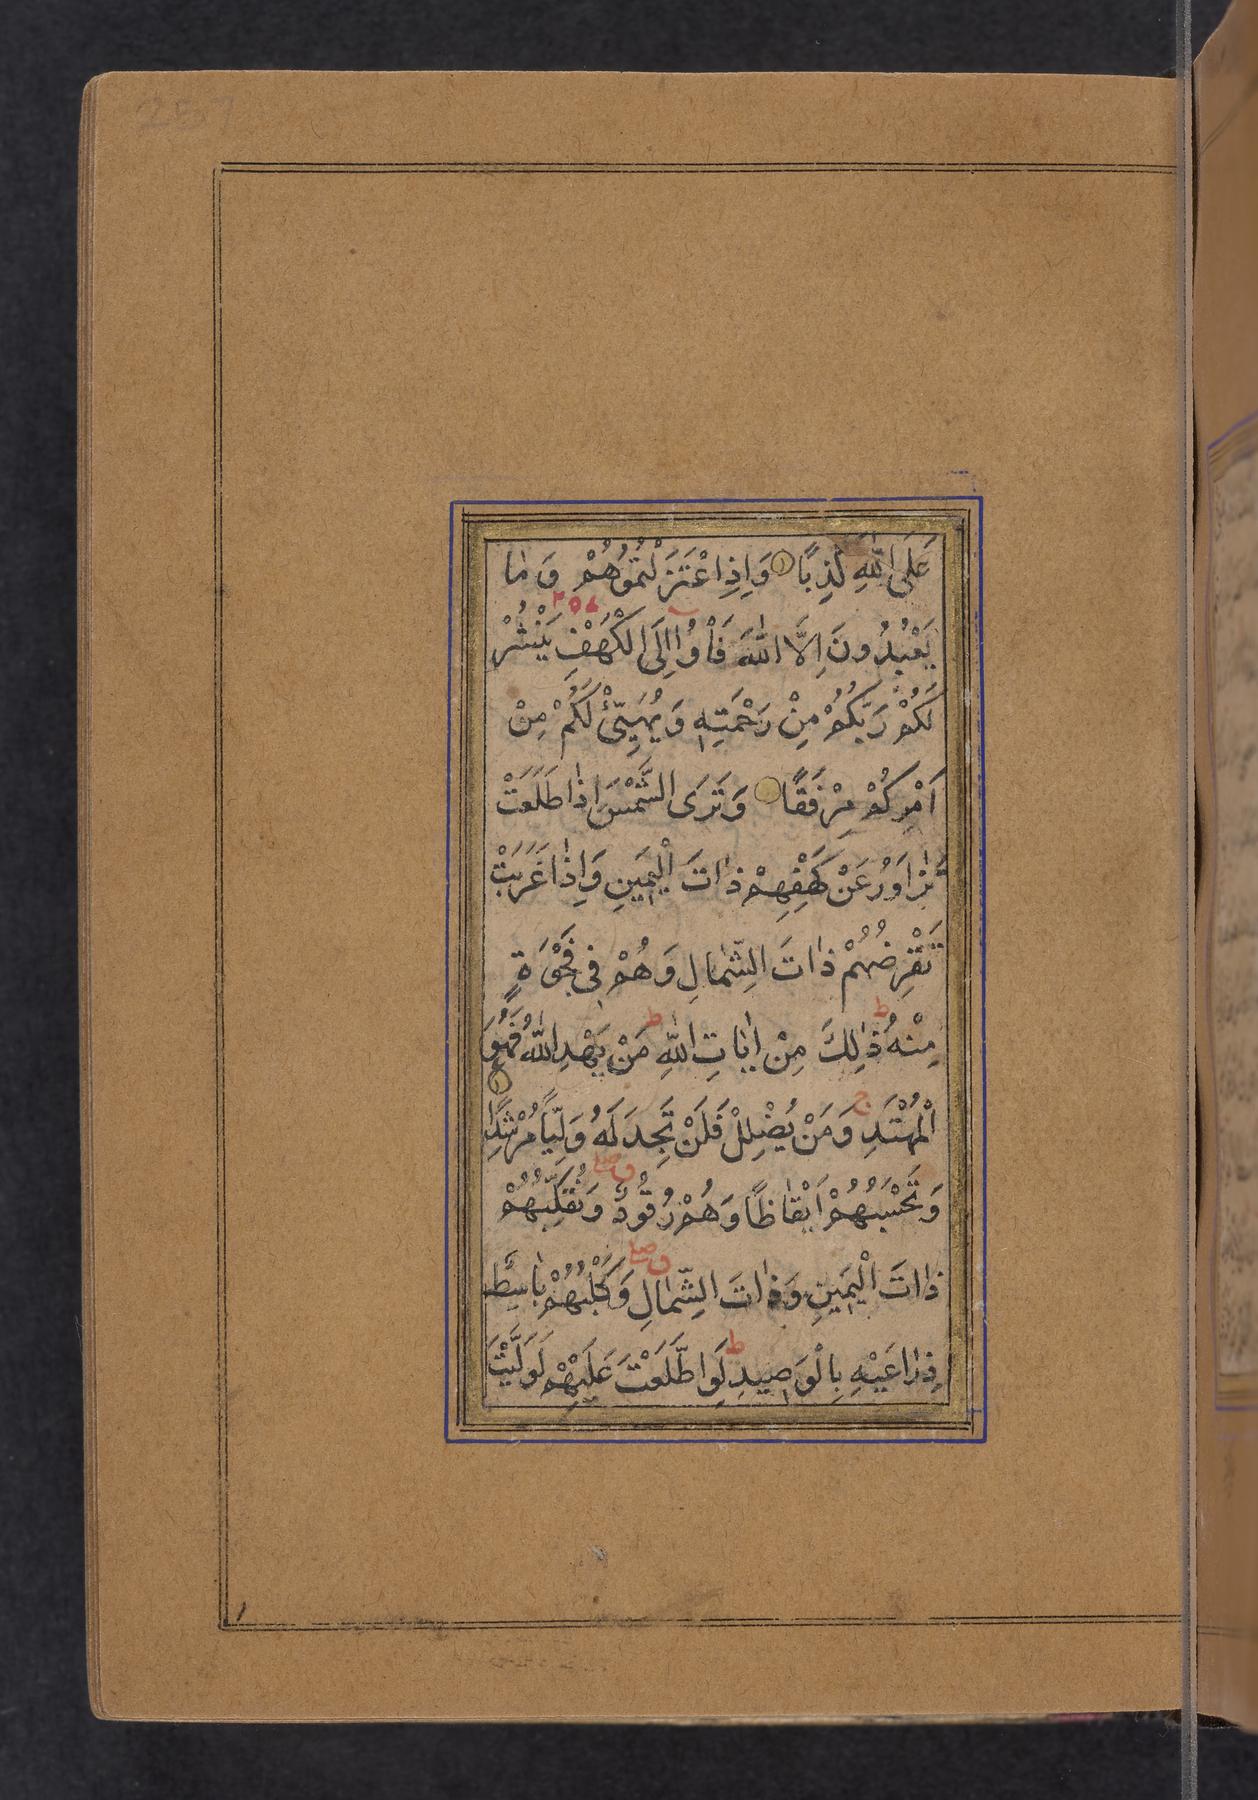 257
عَلَى اللّٰهِ كَذِبًا وَاِذِ اعْتَزَلْتُمُوهُمْ وَمَا
۲۵۷
يَعْبُدُونَ اِلَّا اللّٰهَ فَأْوُا اِلَى الْكَهْفِ يَنْشُرْ
لَكُمْ رَبُّكُمْ مِنْ رَحْمَتِهٖ وَيُهَيِّئْ لَكُمْ مِنْ
اَمْرِكُمْ مِرْفَقًا وَتَرَى الشَّمْسَ اِذَا طَلَعَتْ
تَزَاوَرُ عَنْ كَهْفِهِمْ ذَاتَ الْيَمِينِ وَاِذَا غَرَبَتْ
تَقْرِضُهُمْ ذَاتَ الشِّمَالِ وَهُمْ فِى فَجْوَةٍ
مِنْهُ ط ذٰلِكَ مِنْ اٰيَاتِ اللّٰهِ ط مَنْ يَهْدِ اللّٰهُ فَهُوَ
الْمُهْتَدِ ج وَمَنْ يُضْلِلْ فَلَنْ تَجِدَ لَهُ وَلِيًّا مُرْشِدًا
وَتَحْسَبُهُمْ اَيْقَاظًا وَهُمْ رُقُودٌ وَنُقَلِّبُهُمْ
ذَاتَ الْيَمِينِ وَذَاتَ الشِّمَالِ وَكَلْبُهُمْ بَاسِطٌ
ذِرَاعَيْهِ بِالْوَصِيدِ ط لَوِ اطَّلَعْتَ عَلَيْهِمْ لَوَلَّيْتَ